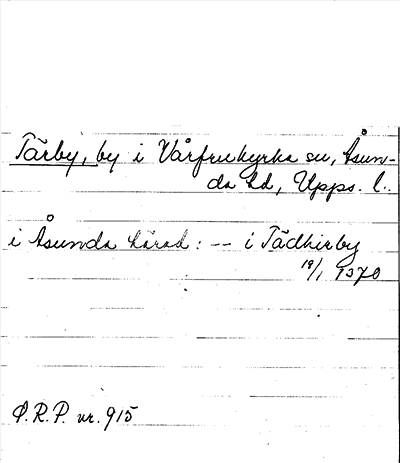 Tärby, by i Vårfrukyrka sn, Åsun-
da hd, Upps. l.
i Åsunda hærad: -- i Tädhirby
19/1 1370
Ø.R.P. nr. 915